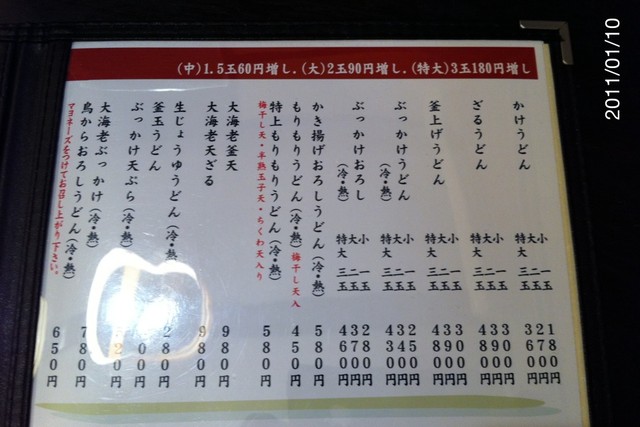 (中)1.5玉60円増し.(大)2玉90円増し.(特大)3玉180円増し
かけうどん 小一玉 180円 大二玉 270円 特大三玉 360円
ざるうどん 小一玉 300円 大二玉 390円 特大三玉 480円
釜上げうどん 小一玉 300円 大二玉 390円 特大三玉 480円
ぶっかけうどん(冷・熱) 小一玉 250円 大二玉 340円 特大三玉 430円
ぶっかけおろし(冷・熱) 小一玉 280円 大二玉 370円 特大三玉 460円
かき揚げおろしうどん(冷・熱) 580円
もりもりうどん(冷・熱)梅干し天入 450円
特上もりもりうどん(冷・熱) 580円
梅干し天・半熟玉子天・ちくわ天入り
大海老釜天 980円
大海老天ざる 980円
生じょうゆうどん(冷・熱) 280円
釜玉うどん 円
ぶっかけ天ぷら(冷・熱) 円
大海老ぶっかけ(冷・熱) 780円
鳥からおろしうどん(冷・熱) 650円
マヨネーズをつけてお召し上がり下さい。
2011/01/10